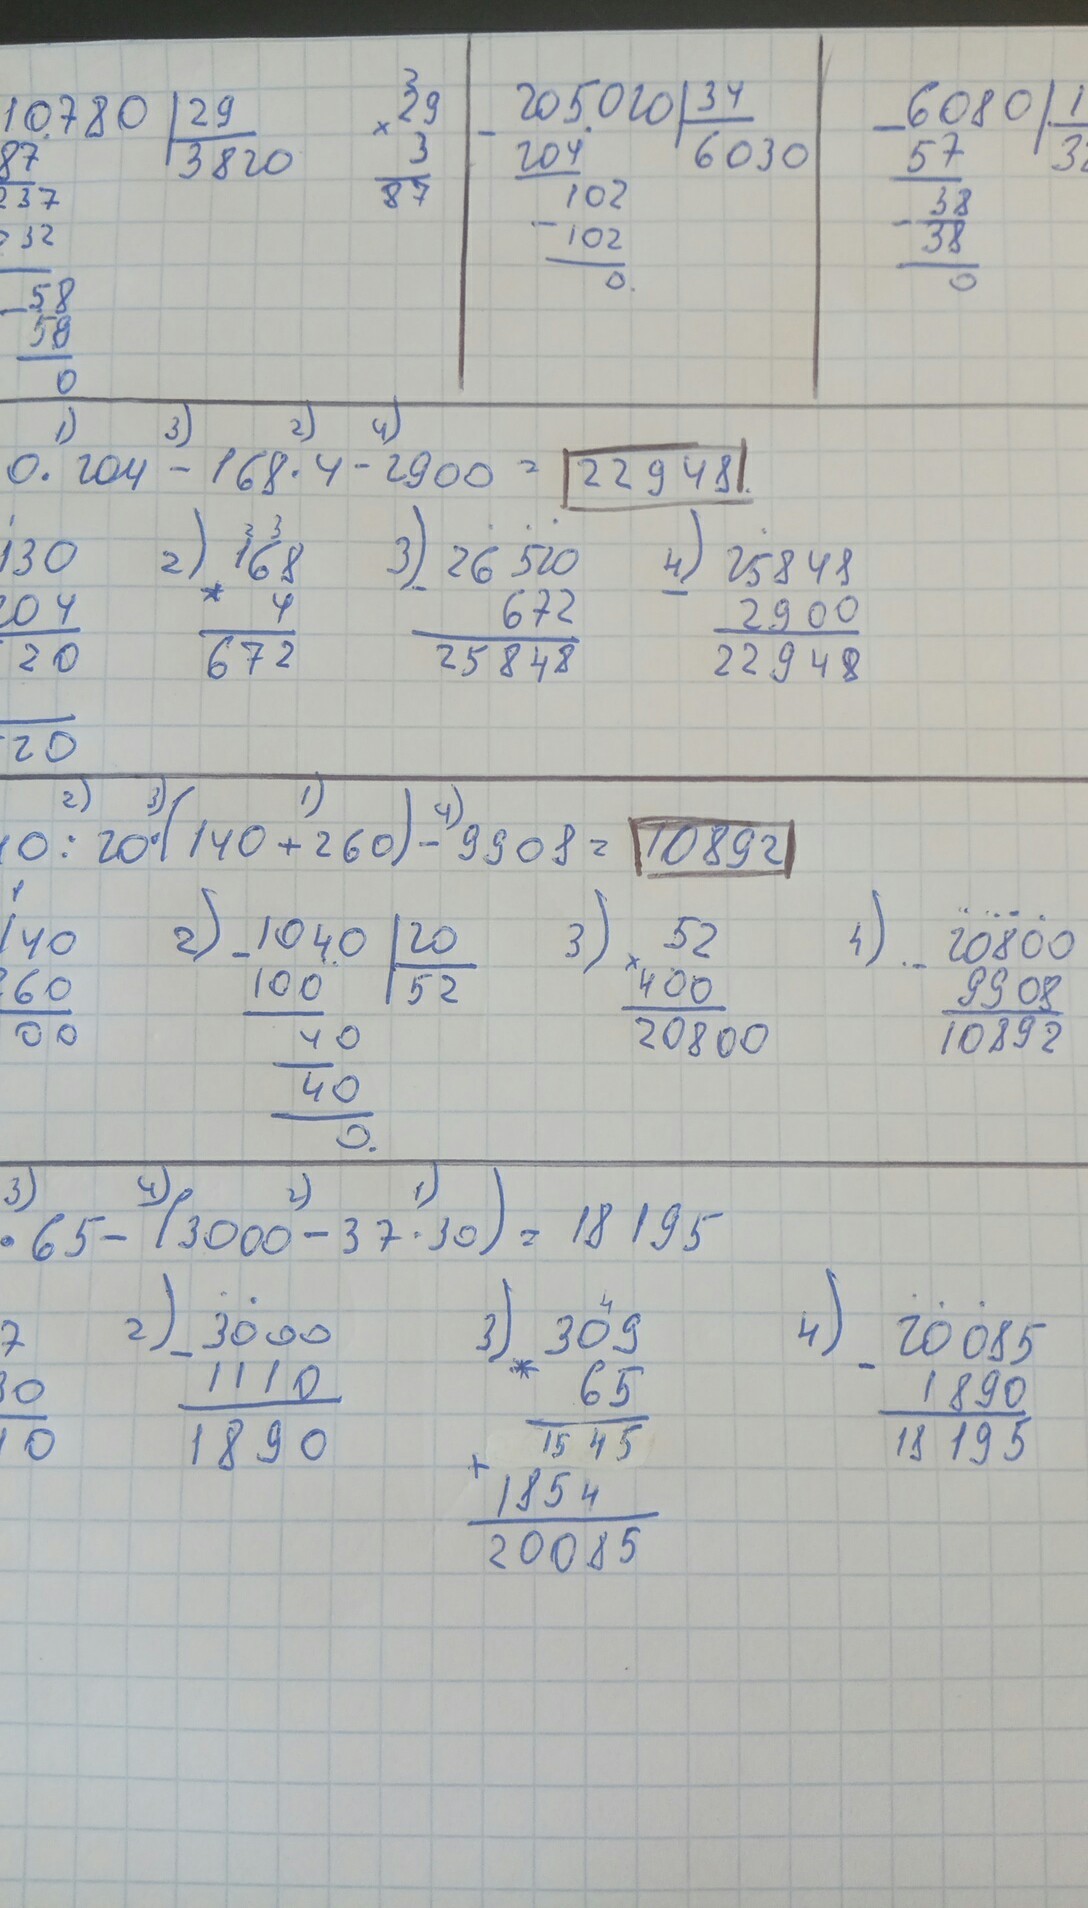 10780 29 3 205020 34 6080 1
87 3820 × 29 - 204 6030 - 57 32
237 3 102 38
232 87 - 102 - 38
- 58 0. 0
58
0
1) 3) 2) 4)
0. 204 - 168 · 4 - 2900 = 22948.
130 2) 168 3) 26520 4) 25848
204 * 4 - 672 - 2900
20 672 25848 22948
520
2) 3) 1) 4)
40 : 20 · (140 + 260) - 9908 = 10892
140 2) - 1040 20 3) 52 4) - 20800
260 100 52 × 400 9908
00 40 20800 10892
40
0.
3) 4) 2) 1)
· 65 - (3000 - 37 · 30) = 18195
7 2) - 3000 3) 309 4) - 20085
30 1110 * 65 1890
10 1890 1545 18195
+ 1854
20085